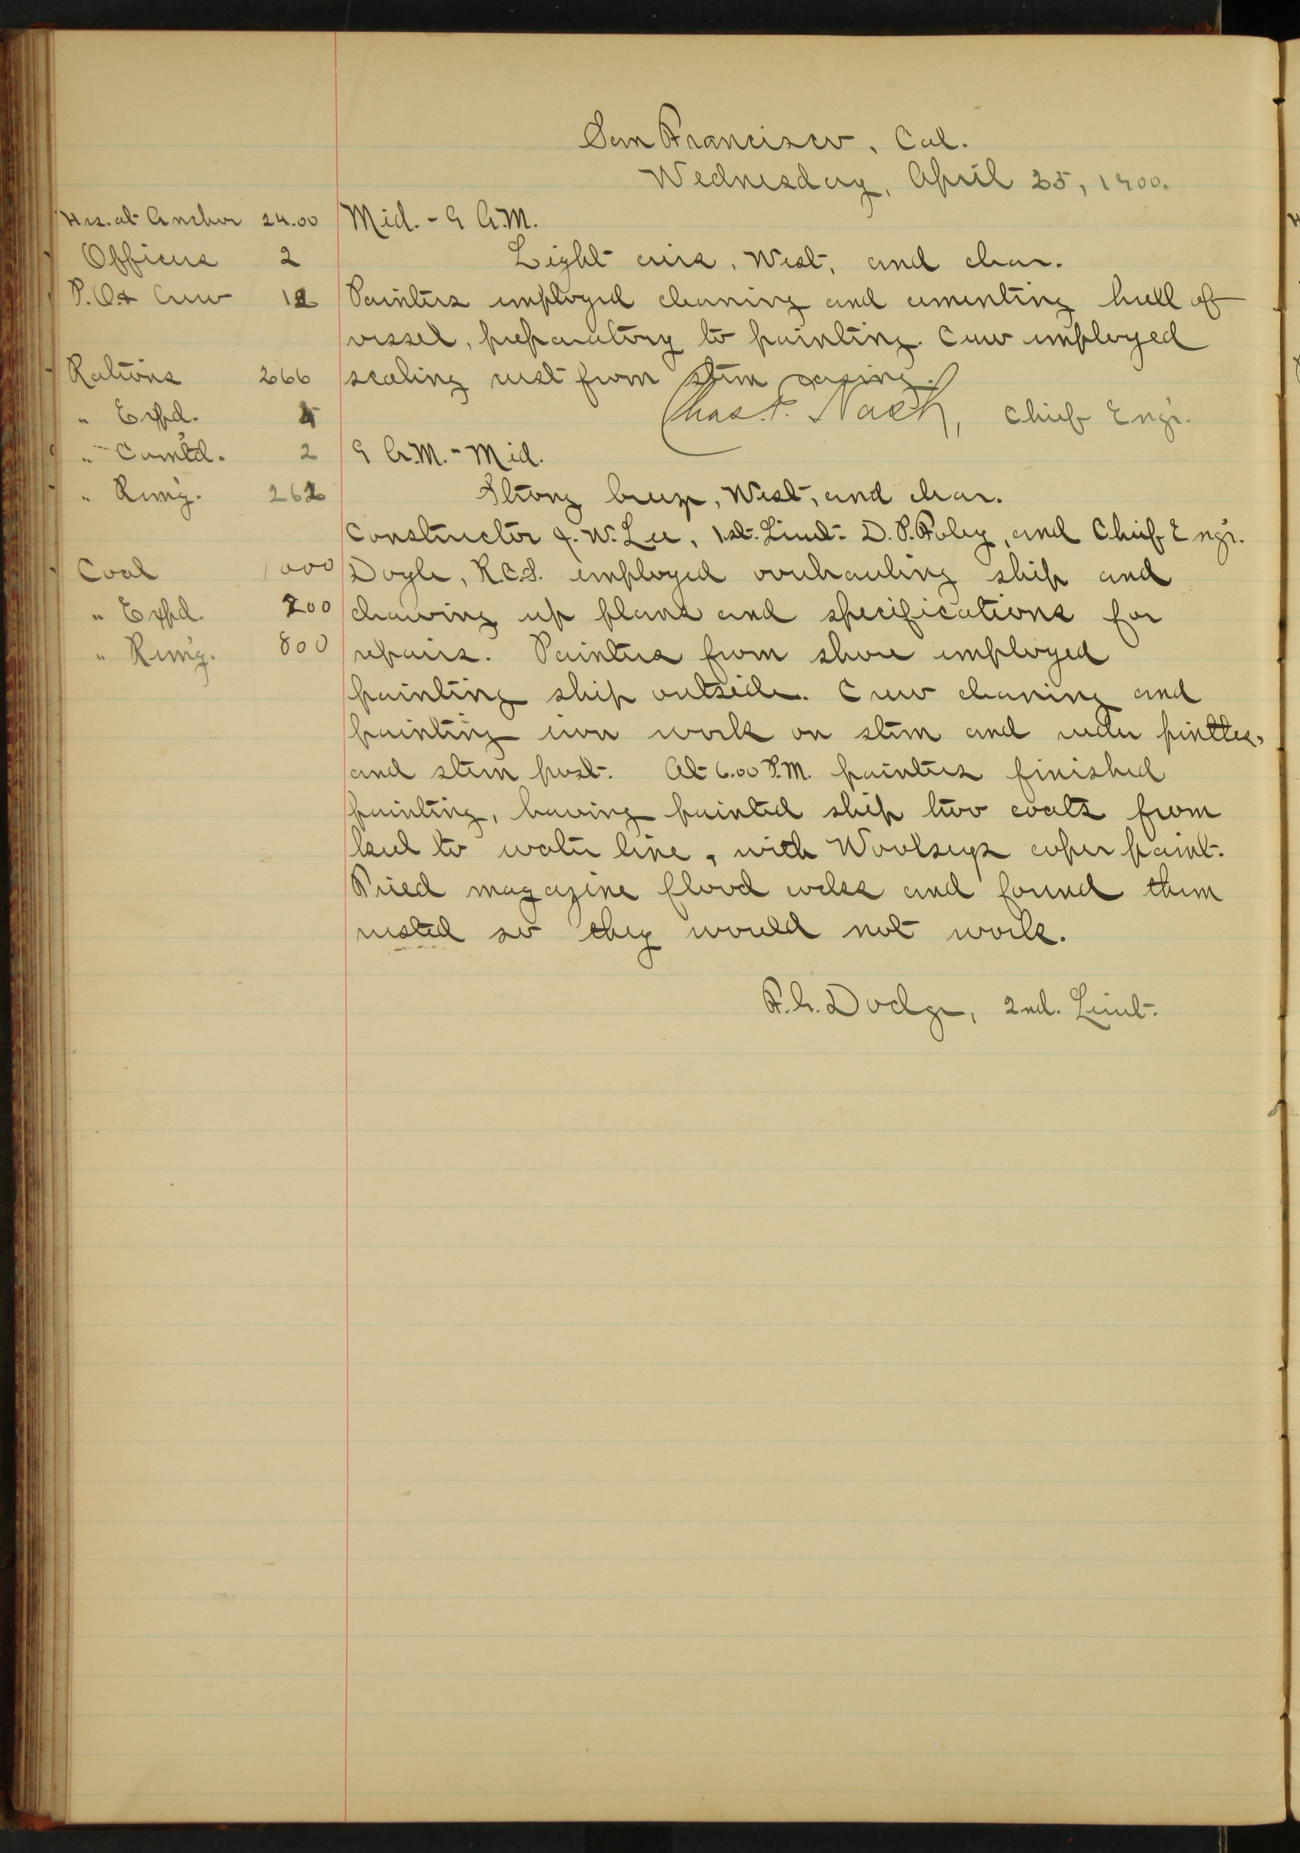 San Francisco, Cal.
Wednesday, April 25, 1900.
Hrs. at Anchor 24.00
Officers 2
P.O & Crew 12
Rations 266
" Expd. 4
" Com'td. 2
" Rem'g. 262
Coal 1000
" Expd. 200
" Rem'g. 800
Mid. - 9 A.M.
Light airs, West, and clear.
Painters employed cleaning and cementing hull of
vessel, preparatory to painting. Crew employed
scaling rust from stem casing.
Chas. F. Nash, Chief Engr.
9 A.M. - Mid.
Strong breeze, West, and clear.
Constructor J. W. Lee, 1st. Lieut. D. P. Foley, and Chief Engr.
Doyle, R.C.S. employed overhauling ship and
drawing up plans and specifications for
repairs. Painters from shore employed
painting ship outside. Crew cleaning and
painting iron work on stem and rudder pintles,
and stern post. At 6.00 P.M. painters finished
painting, having painted ship two coats from
keel to water line, with Woolseys coper paint.
Tried magazine flood cocks and found them
rusted so they would not work.
F. G. Dodge, 2nd. Lieut.